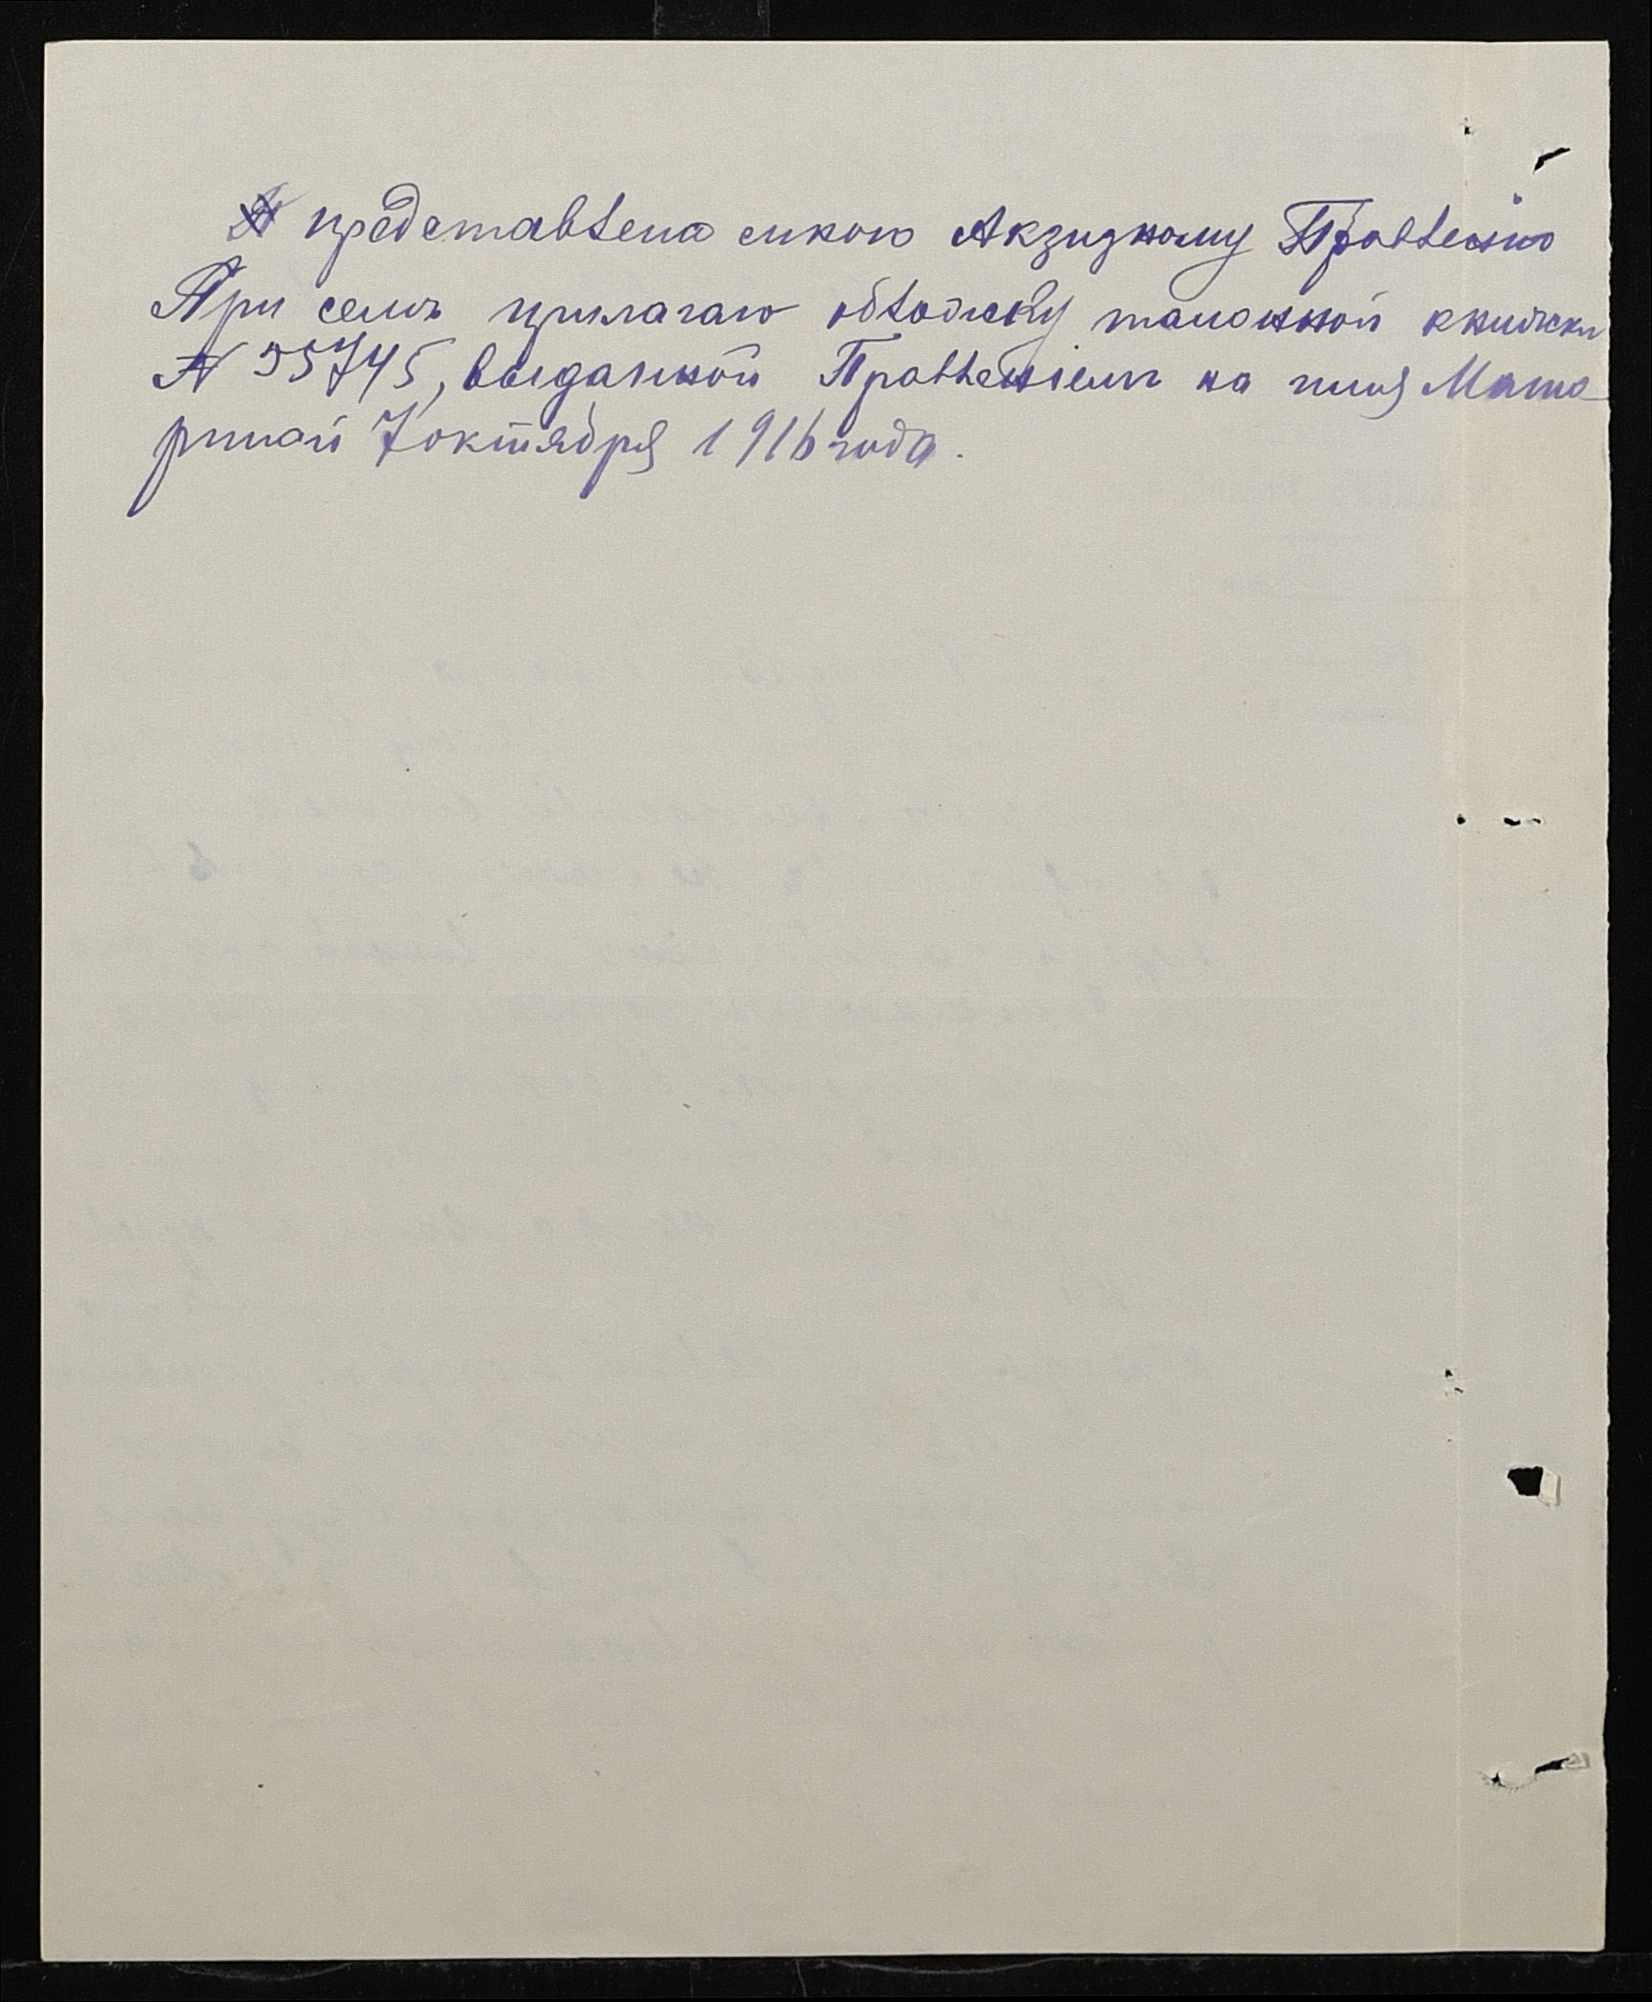 представлена мною Акцизному Правленію
При семъ прилагаю обложку талонной книжки
№ 55745, выданной Правленіемъ на имя Мата
риной 7 октября 1916 года.